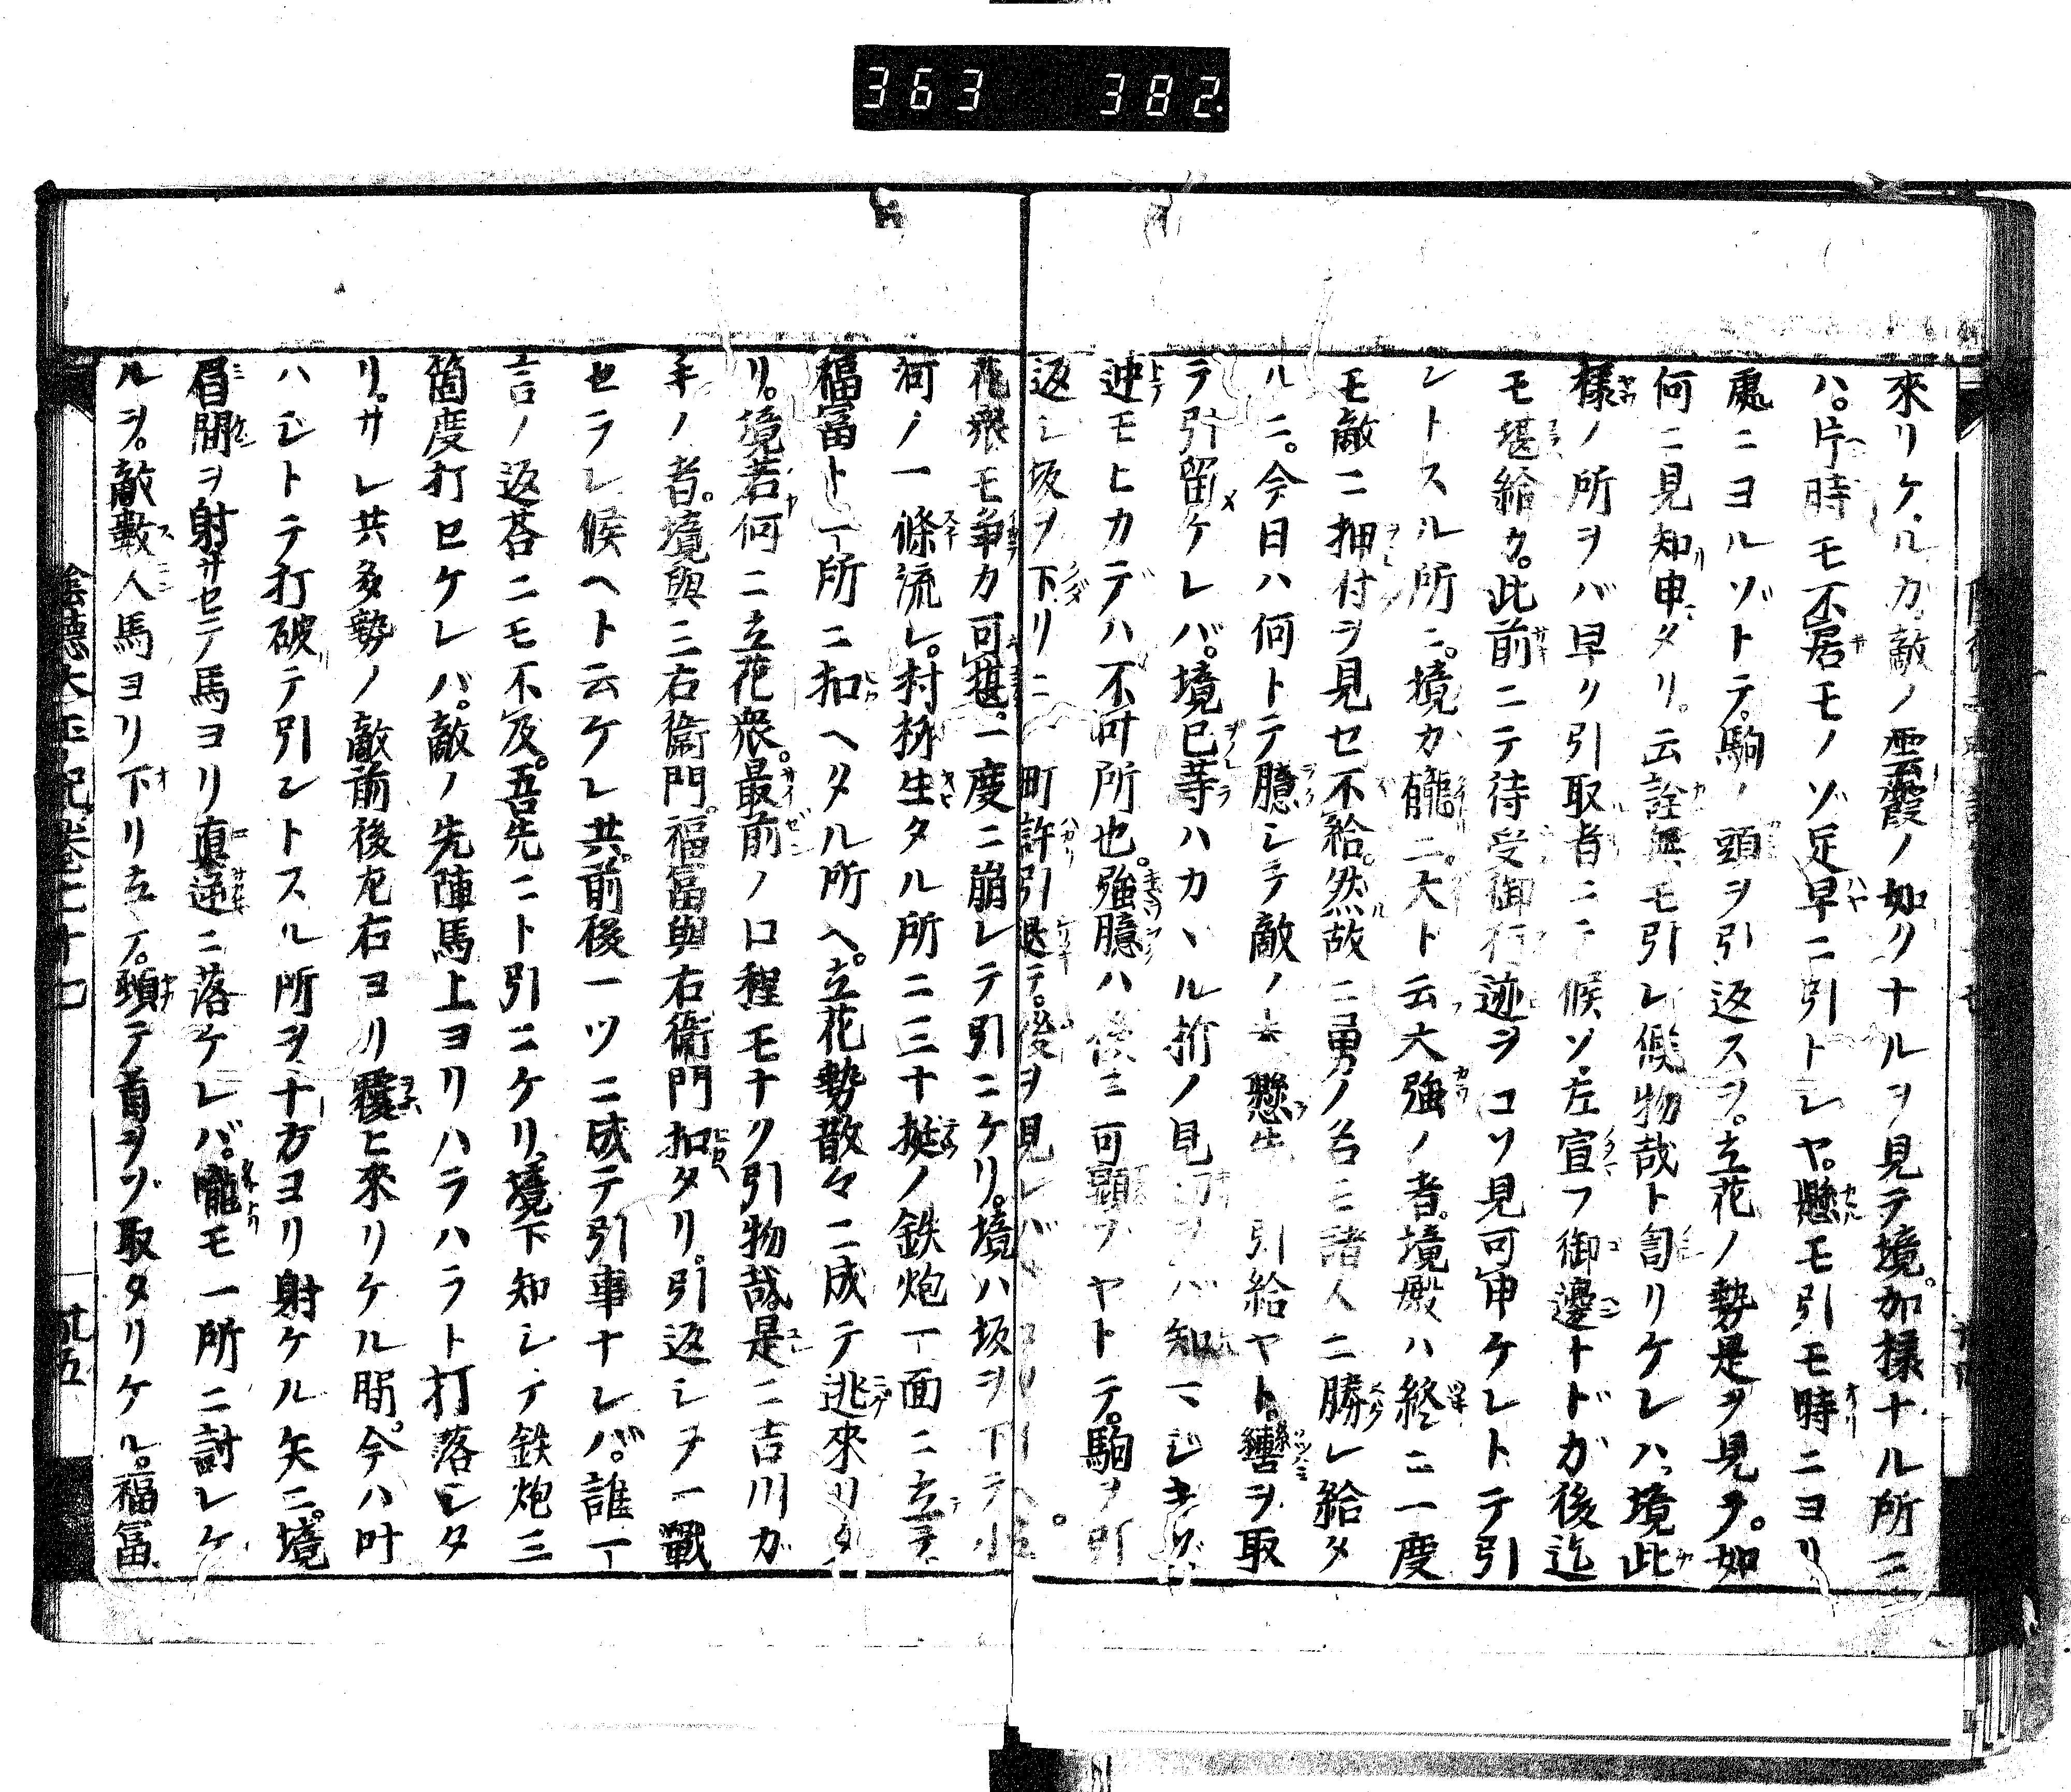 363 382
來リケルカ。敵ノ雲霞ノ如クナルヲ見テ境。加樣ナル所ニ
ハ。片時モ不居モノゾ足早ニ引トレヤ。懸モ引モ時ニヨリ
處ニヨルゾトテ。駒ノ頭ヲ引返スヲ。立花ノ勢是ヲ見テ。如
何ニ見知申タリ。云詮無モ引レ候物哉ト訇リケレハ。境此
樣ノ所ヲバ早ク引取者ニテ候ソ。左宣フ御邊トドガ後迄
モ堪給カ。此前ニテ待受御行迹ヲコソ見可申ケレトテ引
ントスル所ニ。境カ二大ト云大強ノ者。境殿ハ終ニ一度
モ敵ニ押付ヲ見セ不給。然故ニ勇ノ名モ諸人ニ勝レ給タ
ルニ。今日ハ何トテ臆シテ敵ノ懸引給ヤト。轡ヲ取
テ引留ケレバ。境已等ハカヽル折ノ見切ヲバ知マジキゾ
迚モヒカデハ不叶所也。強臆ハ後ニ可顕ゾヤトテ。駒ヲ引
返シ坂ヲ下リニ町許引退テ。後ヲ見レバ
花衆モ争カ可堪。一度ニ崩レテ引ニケリ。境ハ坂ヲ下テ小
河ノ一條流レ。村柳生タル所ニ三十挺ノ鉄炮一面ニ立テ
福冨ト一所ニ扣ヘタル所ヘ。立花勢散々ニ成テ逃來リタ
リ。境若何ニ立花衆。最前ノ口程モナク引物哉。是ニ吉川ガ
手ノ者。境與三右衞門。福冨與右衞門扣タリ。引返シヲ一戰
セラレ候ヘト云ケレ共。前後一ツニ成テ引事ナレバ。誰一
言ノ返荅ニモ不及。吾先ニト引ニケリ。境下知シテ鉄炮三
箇度打セケレバ。敵ノ先陣馬上ヨリハラハラト打落シタ
リ。サレ共多勢ノ敵前後左右ヨリ覆ヒ來リケル間。今ハ叶
ハジトテ打破テ引ントスル所ヲ十方ヨリ射ケル矢ニ。境
眉間ヲ射サセテ馬ヨリ真逆ニ落ケレバ。モ一所ニ討レケ
ルヲ。敵數人馬ヨリ下リ立テ。頓テ首ヲゾ取タリケル。福冨
陰德太平記卷七十四
廿五